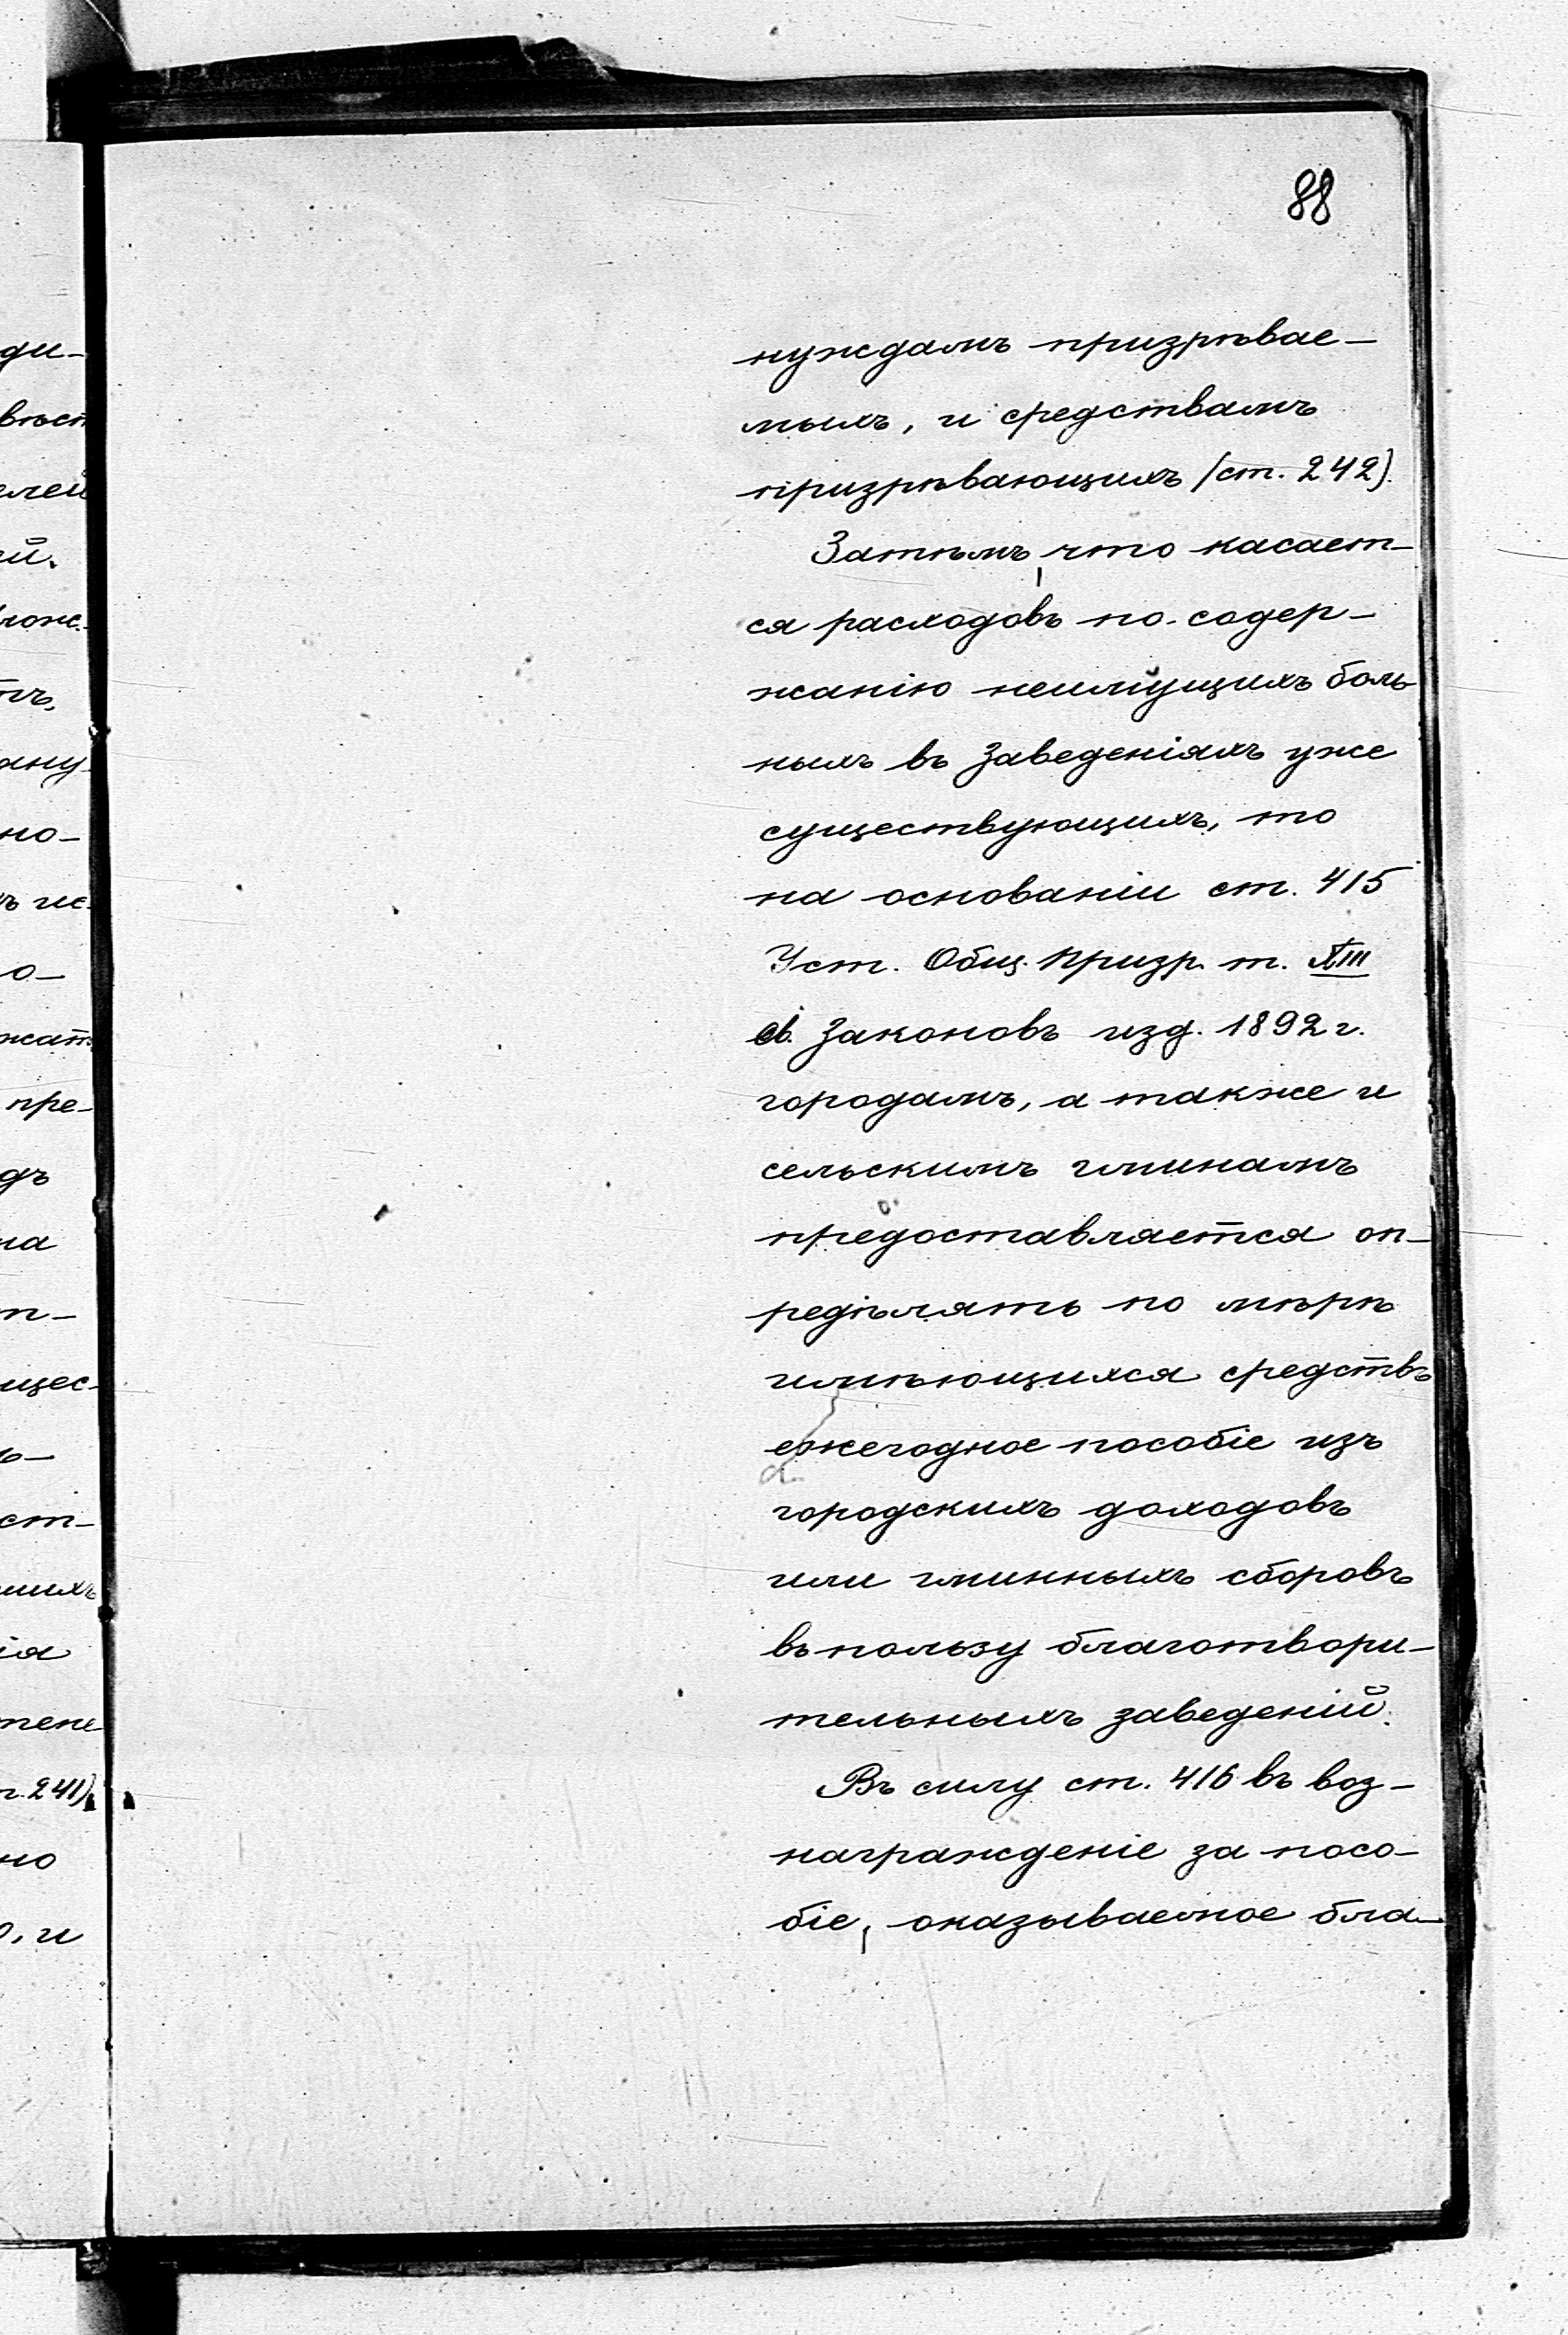 88
нуждамъ призрѣвае-
мыхъ, и средствамъ
призрѣвающихъ (ст. 242).
Затѣмъ, что касает-
ся расходовъ по содер-
жанію неимущихъ боль
ныхъ въ заведеніяхъ уже
существующихъ, то
на основаніи ст. 415
Уст. Общ. Призр. т. XIII
св. Законовъ изд. 1892 г.
городамъ, а также и
сельскимъ гминамъ
предоставляется оп-
редѣлять по мѣрѣ
имѣющихся средствъ
ежегодное пособіе изъ
городскихъ доходовъ
или гминныхъ сборовъ
въ пользу благотвори-
тельныхъ заведеній.
Въ силу ст. 416 въ воз-
награжденіе за посо-
біе, оказываемое бла-